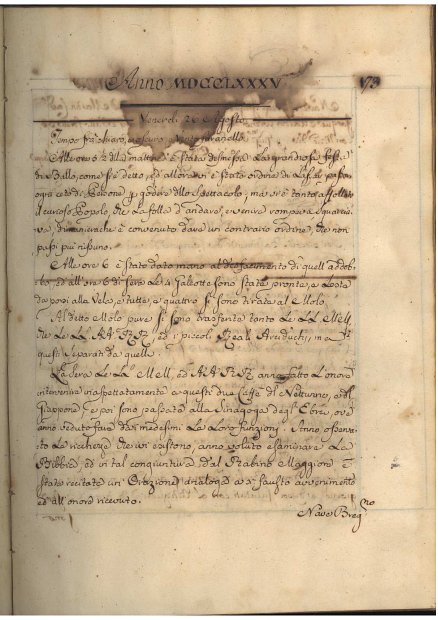 Anno MDCCLXXXV
173
Venerdì 26 Agosto
Tempo frà chiaro, e oscuro, Vento
Alle ore 5 ½ dlla mattina è stata dismessa La grandiosa festa
di Ballo, come s'è detto, ed allora vi è stato ordine di lasciar passare
ogni ceto di Persone p. godere dllo Spettacolo, mà si è tanto affollato
il curioso Popolo, che La folla d'andare, e venire rompeva
va, dimanierache è convenuto dare un contrario ordine, che non
passi più nissuno.
Alle ore 6 è stato dato mano al disfacimento di quell'addob-
bo, ed all'ore 6 di sera Le 4 Galeotte sono state pronte, e Leste
da porsi alla Vela, e tutte, e quattro si sono tirate al Molo.
Al detto Molo pure si sono trasferite tanto Le LL. MM.
che Le LL. AA. RR. ed i piccoli Reali Arciduchi, mà
questi separati da quelle.
La sera Le LL. MM. ed AA. RR. anno fatto L'onore
intervenire inaspettatamente a questi due Caffè di Nettunno, e dl
Giappone e poi sono passati alla Sinagoga degl'Ebrei, ove
anno veduto fare dai medesimi Le Loro funzioni. Anno osserva-
to Le ricchezze che ivi esistono, anno voluto esaminare La
Bibbia, ed in tal congiuntura dal Rabino Maggiore è
stato recitate un'Orazione analoga a sì fausto avvenimento
ed all'onore ricevuto.
Nave Breg.no